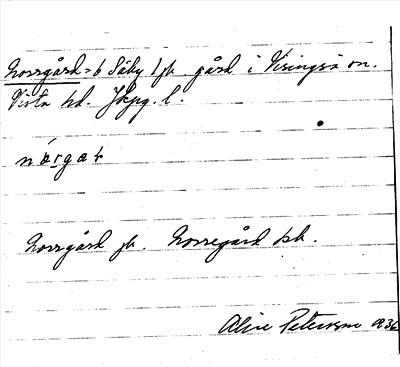 Norrgård = 6 Säby 1 fk. gård i Visingsö sn.
Vista hd. Jkpg. l.
nórgat
Norrgård fk. Norregård hd.
Alice Petersson 1936